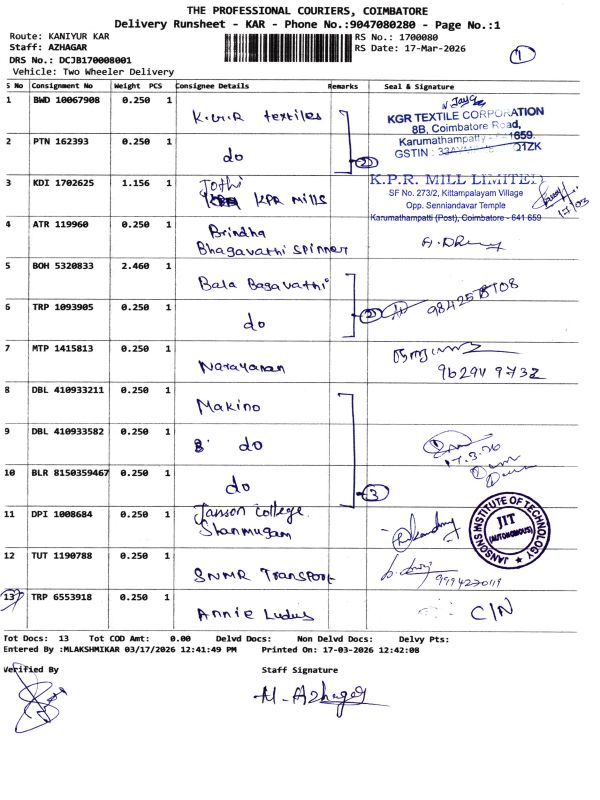 THE PROFESSIONAL COURIERS, COIMBATORE
Delivery Runsheet - KAR - Phone No.:9047080280 - Page No.:1
Route: KANIYUR KAR
RS No.: 1700080
Staff: AZHAGAR
RS Date: 17-Mar-2026
1
DRS No.: DCJB170008001
Vehicle: Two Wheeler Delivery
S No Consignment No Weight PCS Consignee Details Remarks Seal & Signature
1 BWD 10067908 0.250 1 K.G.R textiles
KGR TEXTILE CORPORATION
8B, Coimbatore Road,
Karumathampatty 659.
GSTIN : 21ZK
2 PTN 162393 0.250 1 do 2
3 KDI 1702625 1.156 1 Jothi
KPR mills
K.P.R. MILL LIMITED
SF No. 273/2, Kittampalayam Village
Opp. Senniandavar Temple
Karumathampatti (Post), Coimbatore - 641 659
4 ATR 119960 0.250 1 Brindha
Bhagavathi spinner
5 BOH 5320833 2.460 1 Bala Bagavathi
6 TRP 1093905 0.250 1 do 2
7 MTP 1415813 0.250 1 Narayanan
8 DBL 410933211 0.250 1 Makino
9 DBL 410933582 0.250 1 do
17.3.26
10 BLR 8150359467 0.250 1 do 3
11 DPI 1008684 0.250 1 Janson College
Shanmugam
JANSONS INSTITUTE OF TECHNOLOGY
JIT
(AUTONOMOUS)
12 TUT 1190788 0.250 1 SNMR Transport
13 TRP 6553918 0.250 1 Annie Ludus C/N
Tot Docs: 13 Tot COD Amt: 0.00 Delvd Docs: Non Delvd Docs: Delvy Pts:
Entered By :MLAKSHMIKAR 03/17/2026 12:41:49 PM Printed On: 17-03-2026 12:42:08
Verified By
Staff Signature
M. Azhagar